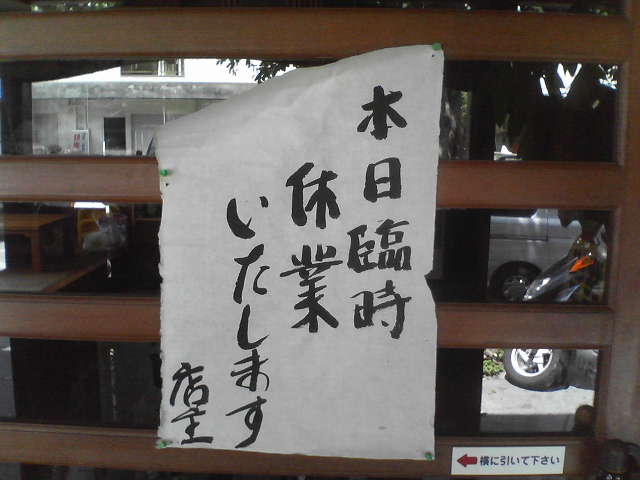 本日臨時
休業
いたします
店主
横に引いて下さい